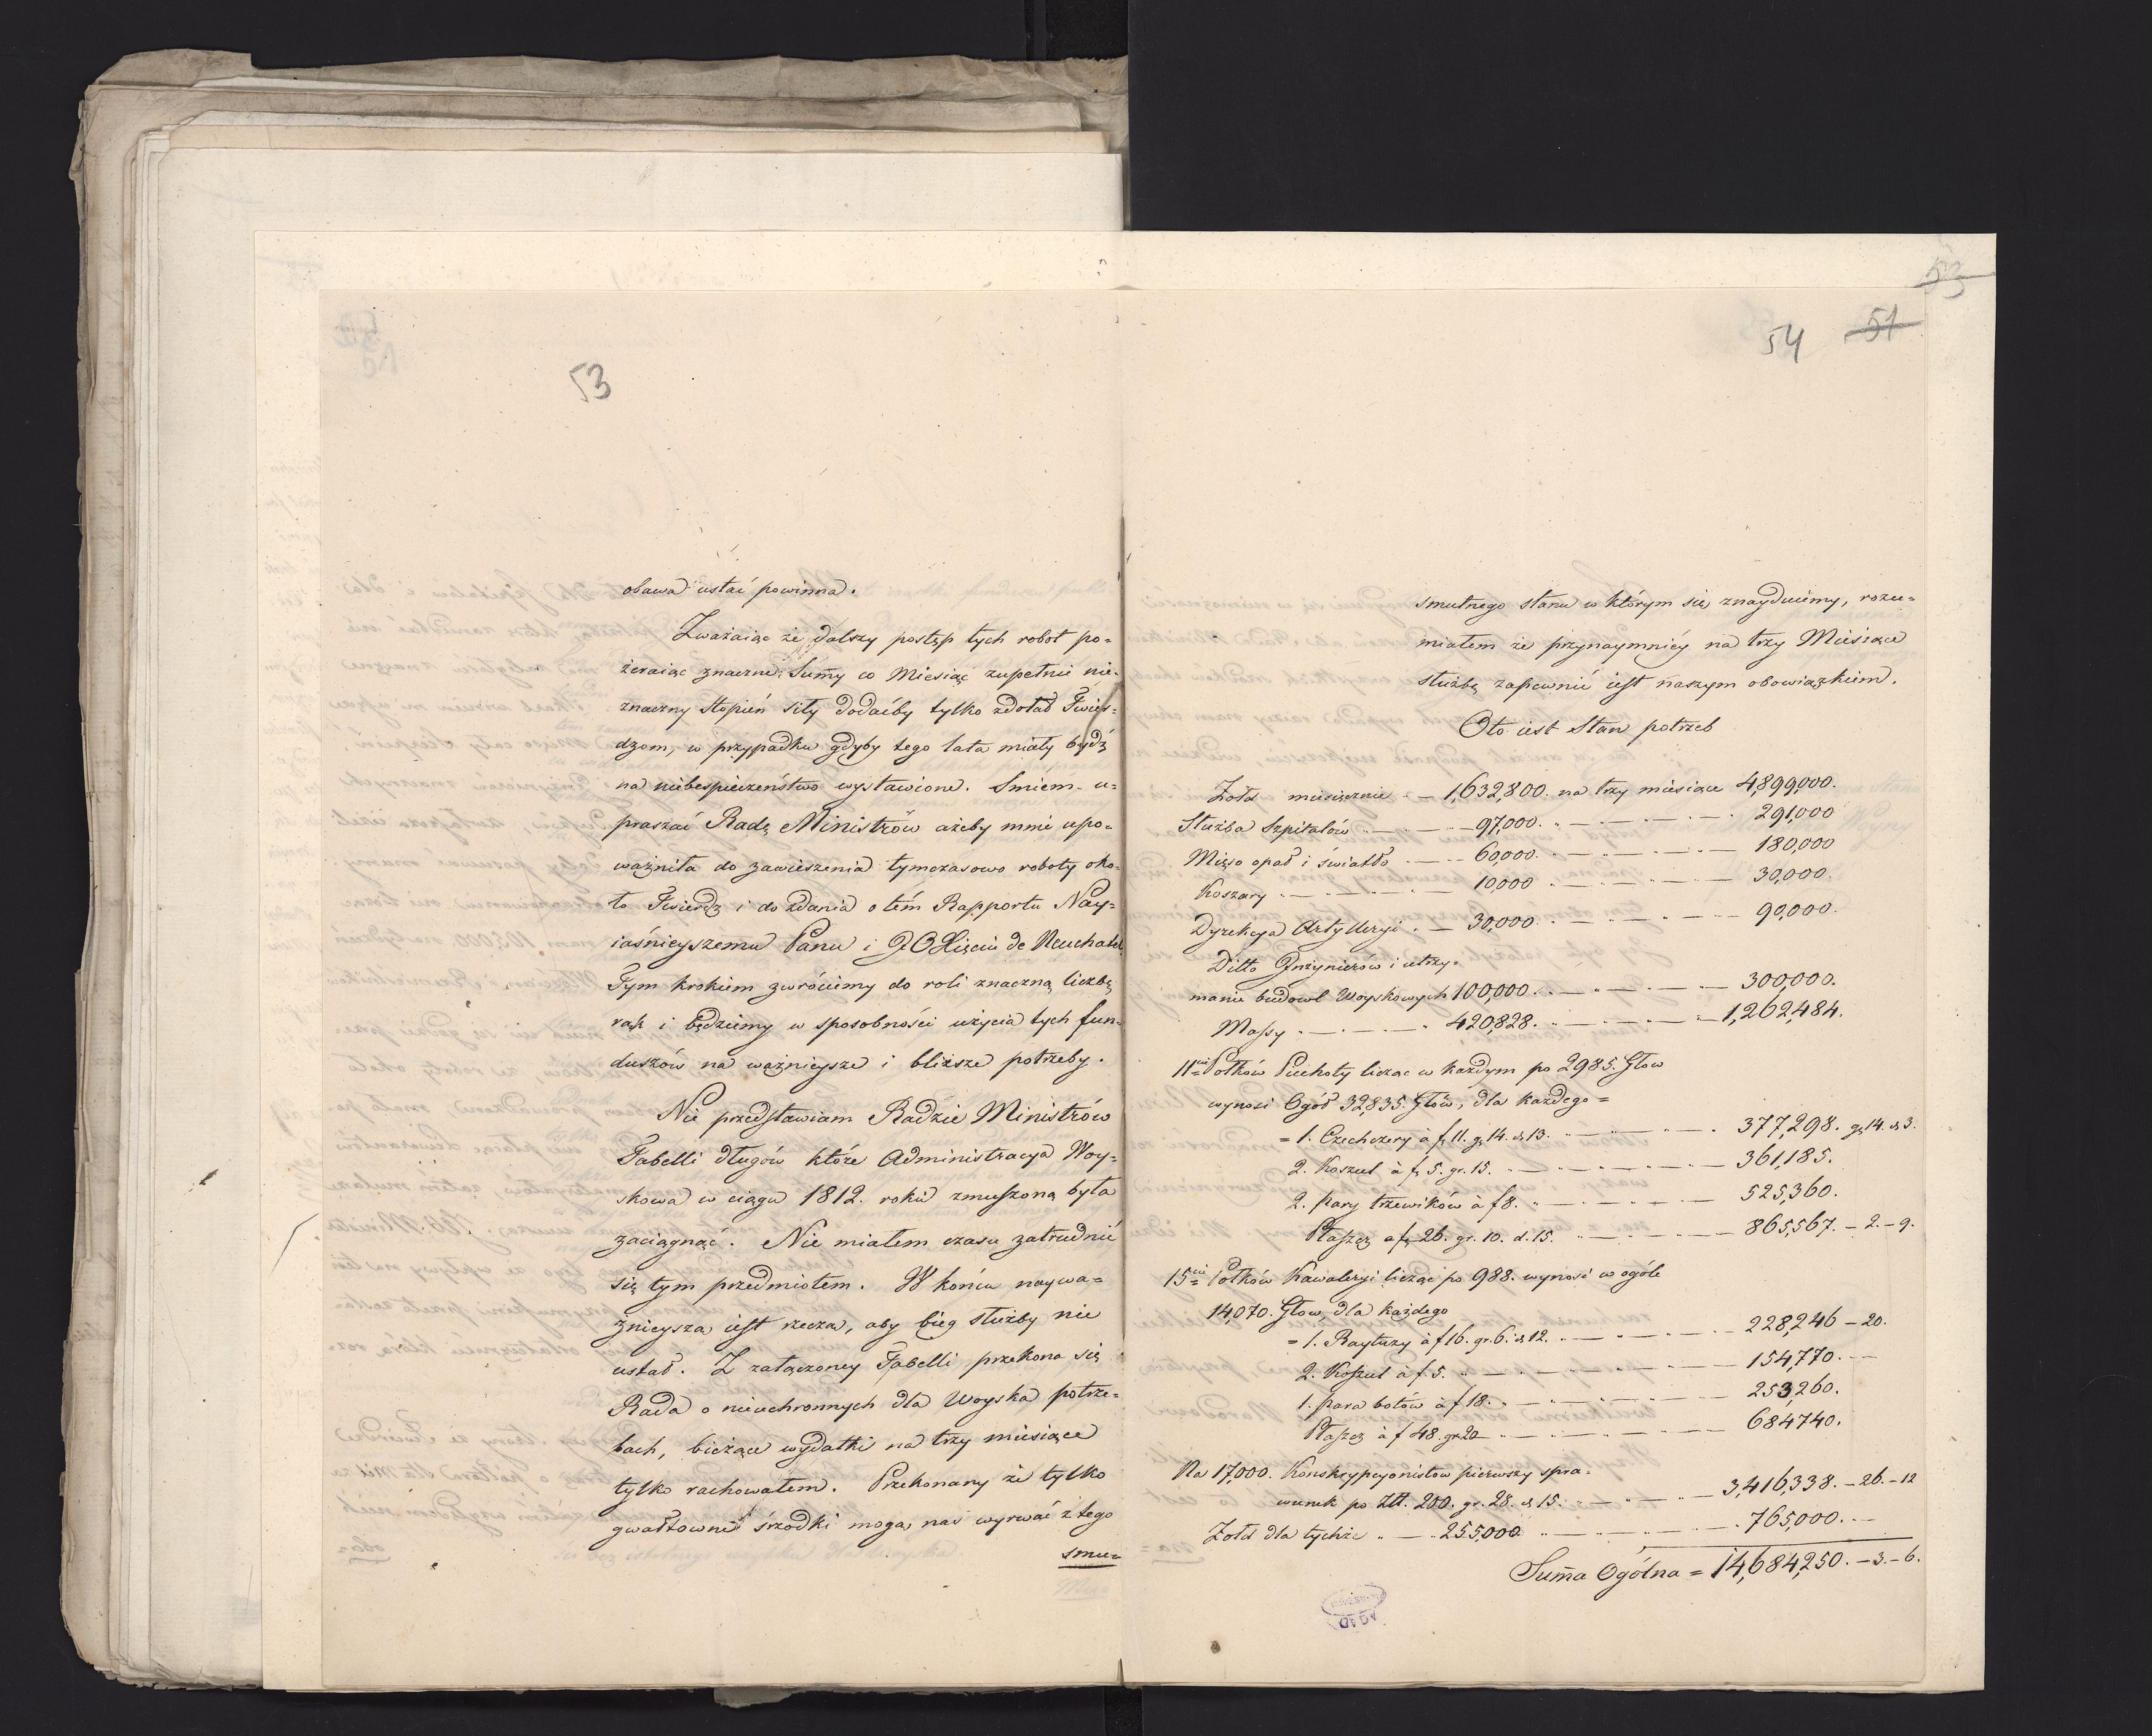 53
obawa ustać powinna.
Zważaiąc że dalszy postęp tych robot po=
żeraiąc znaczne Sum̄y co Miesiąc zupełnie nie=
znaczny stopień siły dodaćby tylko zdołał Twier=
dzom, w przypadku gdyby tego lata miały bydź
na niebespieczeństwo wystawione. Smiem u=
praszać Radę Ministrów ażeby mnie upo=
ważniła do zawieszenia tymczasowo roboty oko=
ło Twierdz i do zdania o tém Rapportu Nay=
iaśnieyszemu Panu i JO Xięciu de Neuchatel.
Tym krokiem zwrócimy do roli znaczną liczbę
rąk i będziemy w sposobności użycia tych fun=
duszów na ważnieysze i bliższe potrzeby.
Nie przedstawiam Radzie Ministrów
Tabelli długów które Administracya Woy=
skowa w ciągu 1812. roku zmuszoną była
zaciągnąć. Nie miałem czasu zatrudnić
się tym przedmiotem. W końcu naywa=
żnieyszą iest rzeczą, aby bieg służby nie
ustał. Z załączoney Tabelli przekona się
Rada o nieuchronnych dla Woyska potrze=
bach, bieżące wydatki na trzy miesiące
tylko rachowałem. Przekonany że tylko
gwałtowne środki mogą nas wyrwać z tego
smu=
53
54 51
smutnego stanu w którym się znayduiemy, rozu=
miałem że przynaymniéy na trzy Miesiące
służbę zapewnić iest naszym obowiązkiem.
Oto iest Stan potrzeb
Żołd miesięcznie . — 1,632,800. na trzy miesiące 4,899,000.
Służba Szpitalów — 97,000. — 291,000
Mięso opał i światło — 60,000. — 180,000
Koszary — 10,000 — 30,000.
Dyrekcya Artylleryi . — 30,000. — 90,000.
Ditto Inżynierów i utrzy=
manie budowl Woyskowych 100,000. — 300,000.
Massy — 420,828. — 1,262,484.
11ciu Połków Piechoty licząc w każdym po 2985. Głow
wynosi Ogół 32,835. Głów, dla każdego =
= 1. Czechczery à f. 11. g. 14. d. 13. — 377,298. g. 14. d. 3.
2. Koszul à f. 5. gr. 15. — 361,185.
2. pary trzewików à f 8. — 525,360.
Płaszcz a f. 26. gr. 10. d. 15. — 865,567. — 2. — 9.
15ciu Połków Kawaleryi licząc po 988. wynosi w ogóle
14,070. Głow, dla każdego
= 1. Raytuzy à f 16. gr. 6. d. 12. — 228,246 — 20.
2. Koszul à f. 5. — 154,770. —
1. para botów à f 18. — 253,260.
Płaszcz à f 48. gr. 20 — 684740.
Na 17,000. Konskrypcyonistow pierwszy spra=
wunek po Złt. 200. gr. 28. d. 15. — 3,416,338. — 26. — 12
Żołd dla tychże — 255,000 — 765,000. —
Sum̄a Ogólna = 14,684,250. — 3. — 6.
AGAD